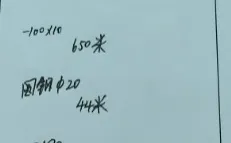 -100×10
650米
圆钢φ20
44米